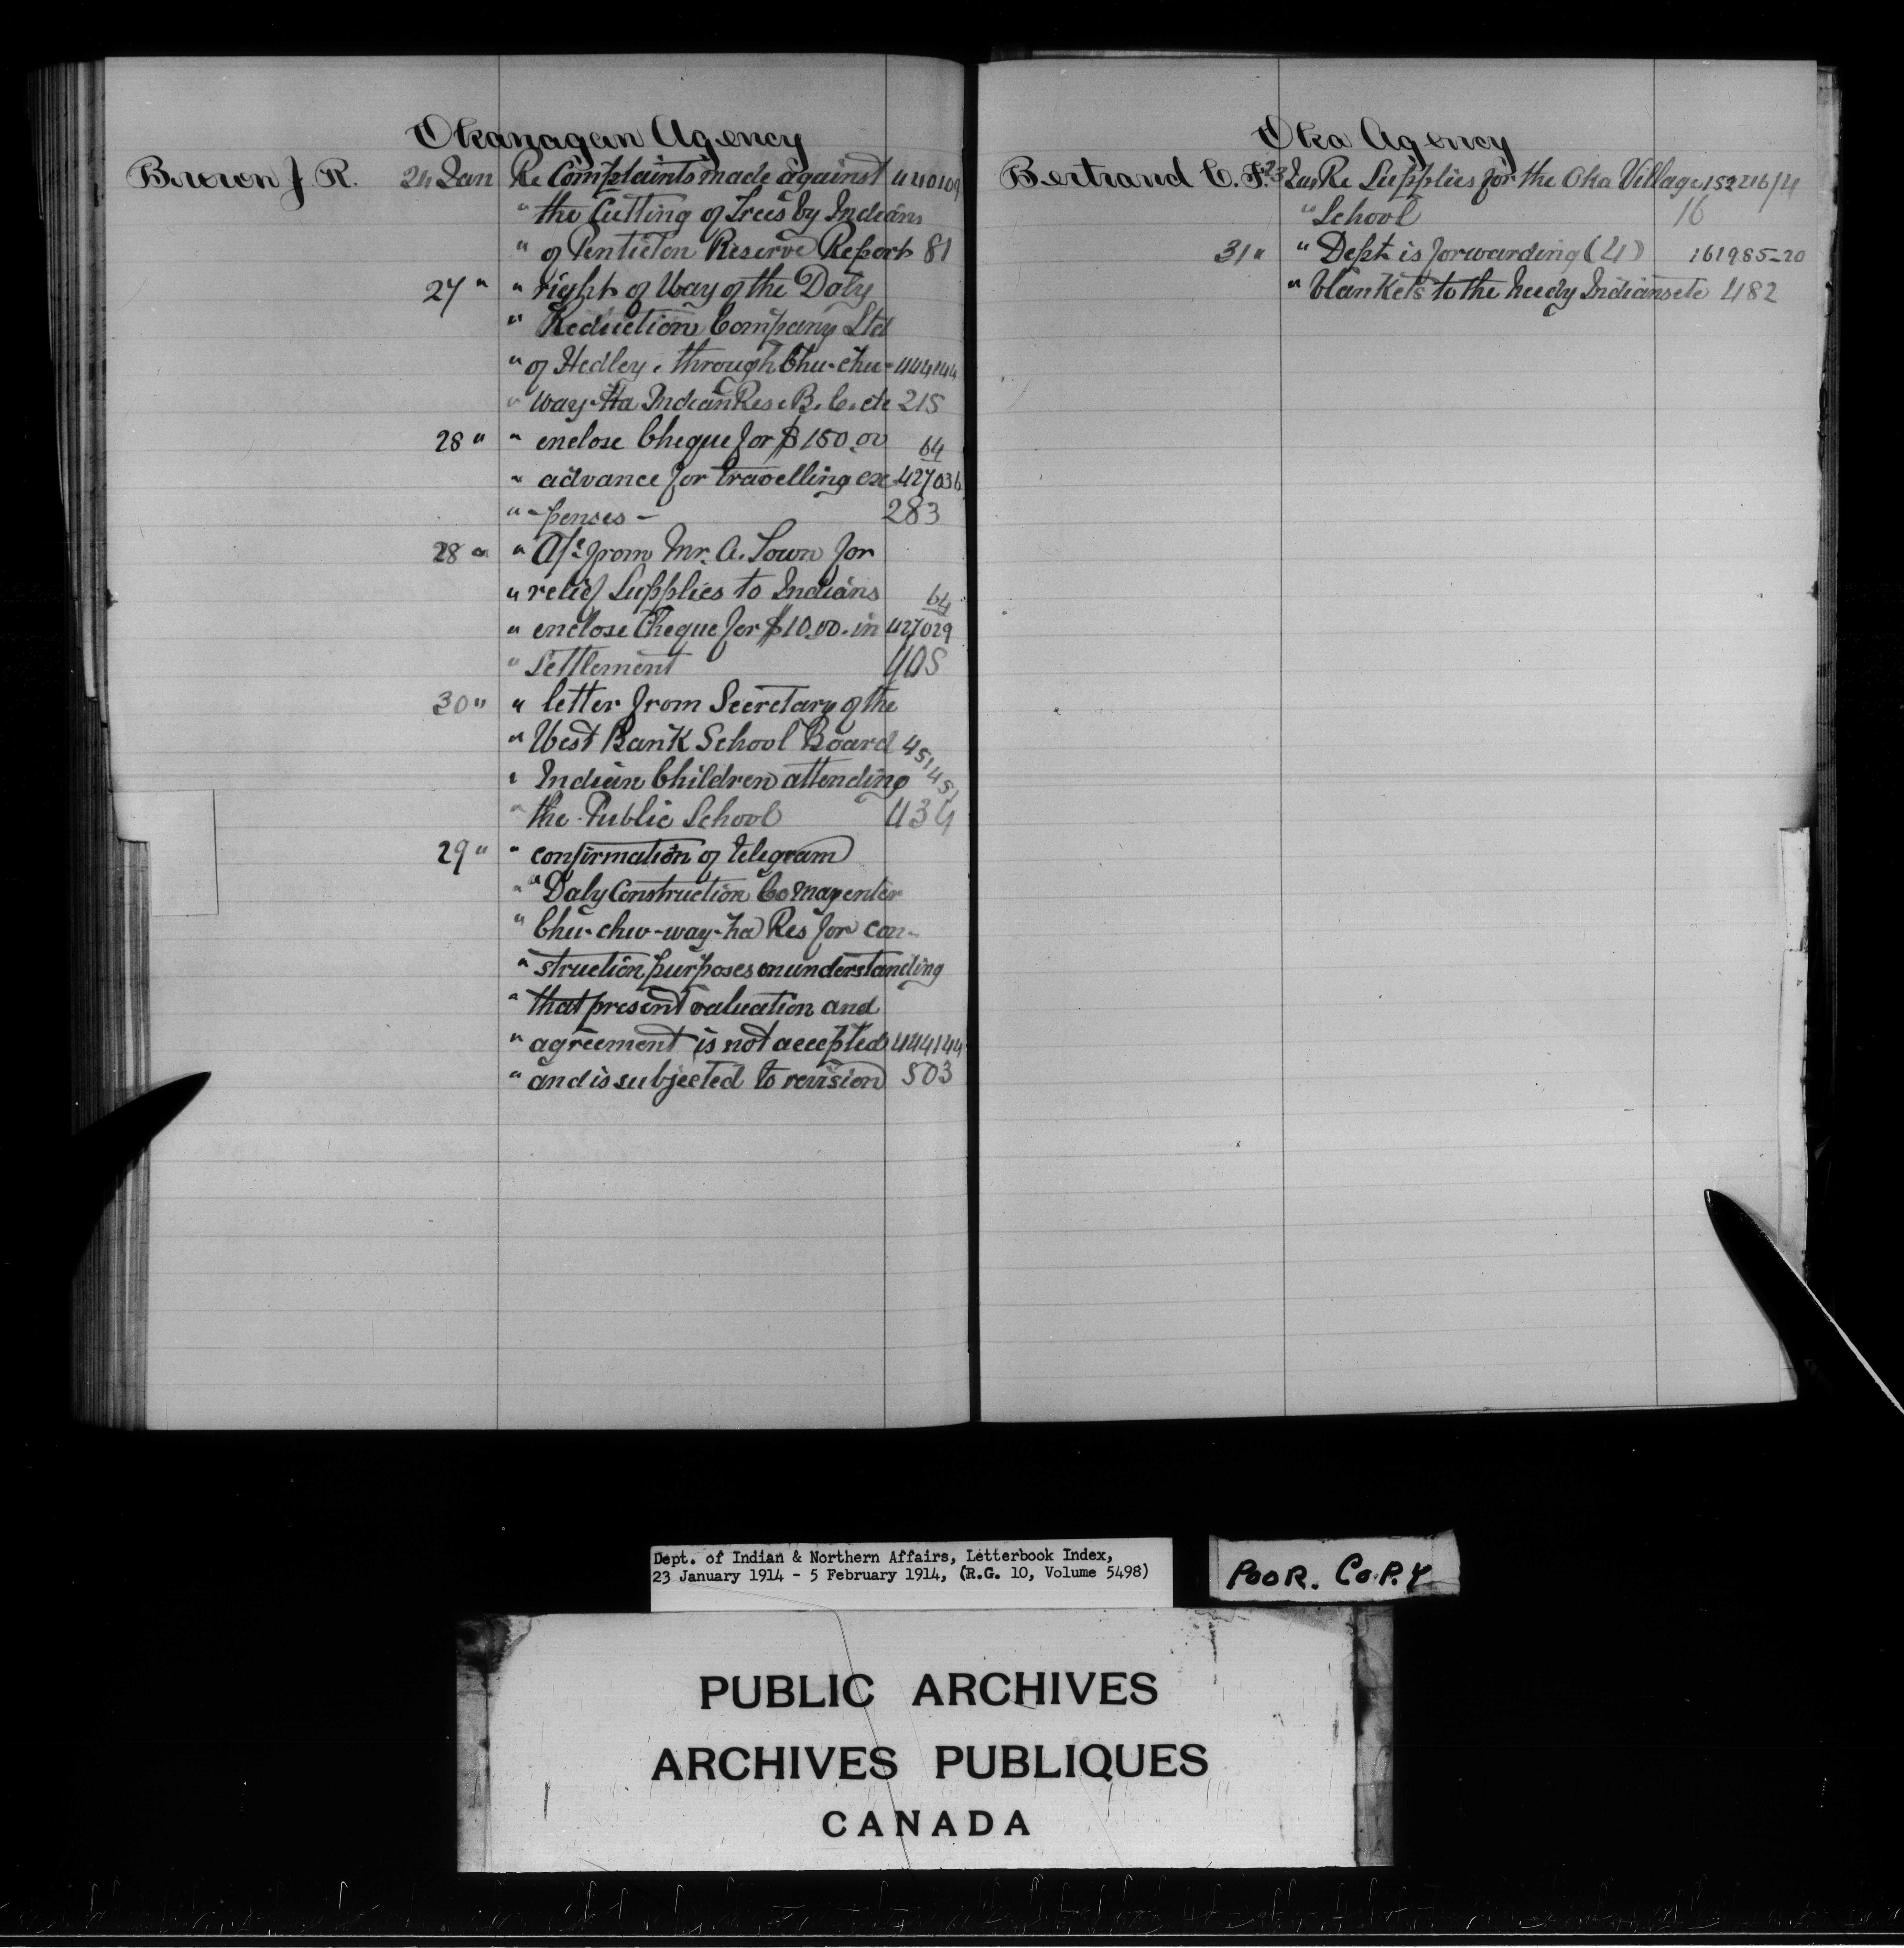 Okanagan Agency
Brown J. R. 24 Jan Re Complaints made against 440109
" the Cutting of Trees by Indians
" of Penticton Reserve Report 81
27 " " right of Way of the Daly
" Reduction Company Ltd
" of Hedley, through Chu-chu- 444144
" way-Ha Indian Res. B.C. etc 215
28 " " enclose Cheque for $150.00 64
" advance for travelling ex- 427036
" -penses - 283
28 " " A/c from Mr. A. Town for
" relief Supplies to Indians 64
" enclose Cheque for $10.00. in 427029
" Settlement 405
30 " " letter from Secretary of the
" West Bank School Board 451451
" Indian Children attending
" the Public School 434
29 " " confirmation of telegram
" " Daly Construction Co may enter
" Chu-chu-way-ha Res for con-
" struction purposes on understanding
" that present valuation and
" agreement is not accepted 444144
" and is subjected to revision 503
Oka Agency
Bertrand C. F. 23 Jan Re Supplies for the Oka Village 152216/4
" School 16
31 " " Dept. is forwarding (4) 161985-20
" blankets to the needy Indians etc 482
Dept. of Indian & Northern Affairs, Letterbook Index,
23 January 1914 - 5 February 1914, (R.G. 10, Volume 5498)
POOR. COPY
PUBLIC ARCHIVES
ARCHIVES PUBLIQUES
CANADA